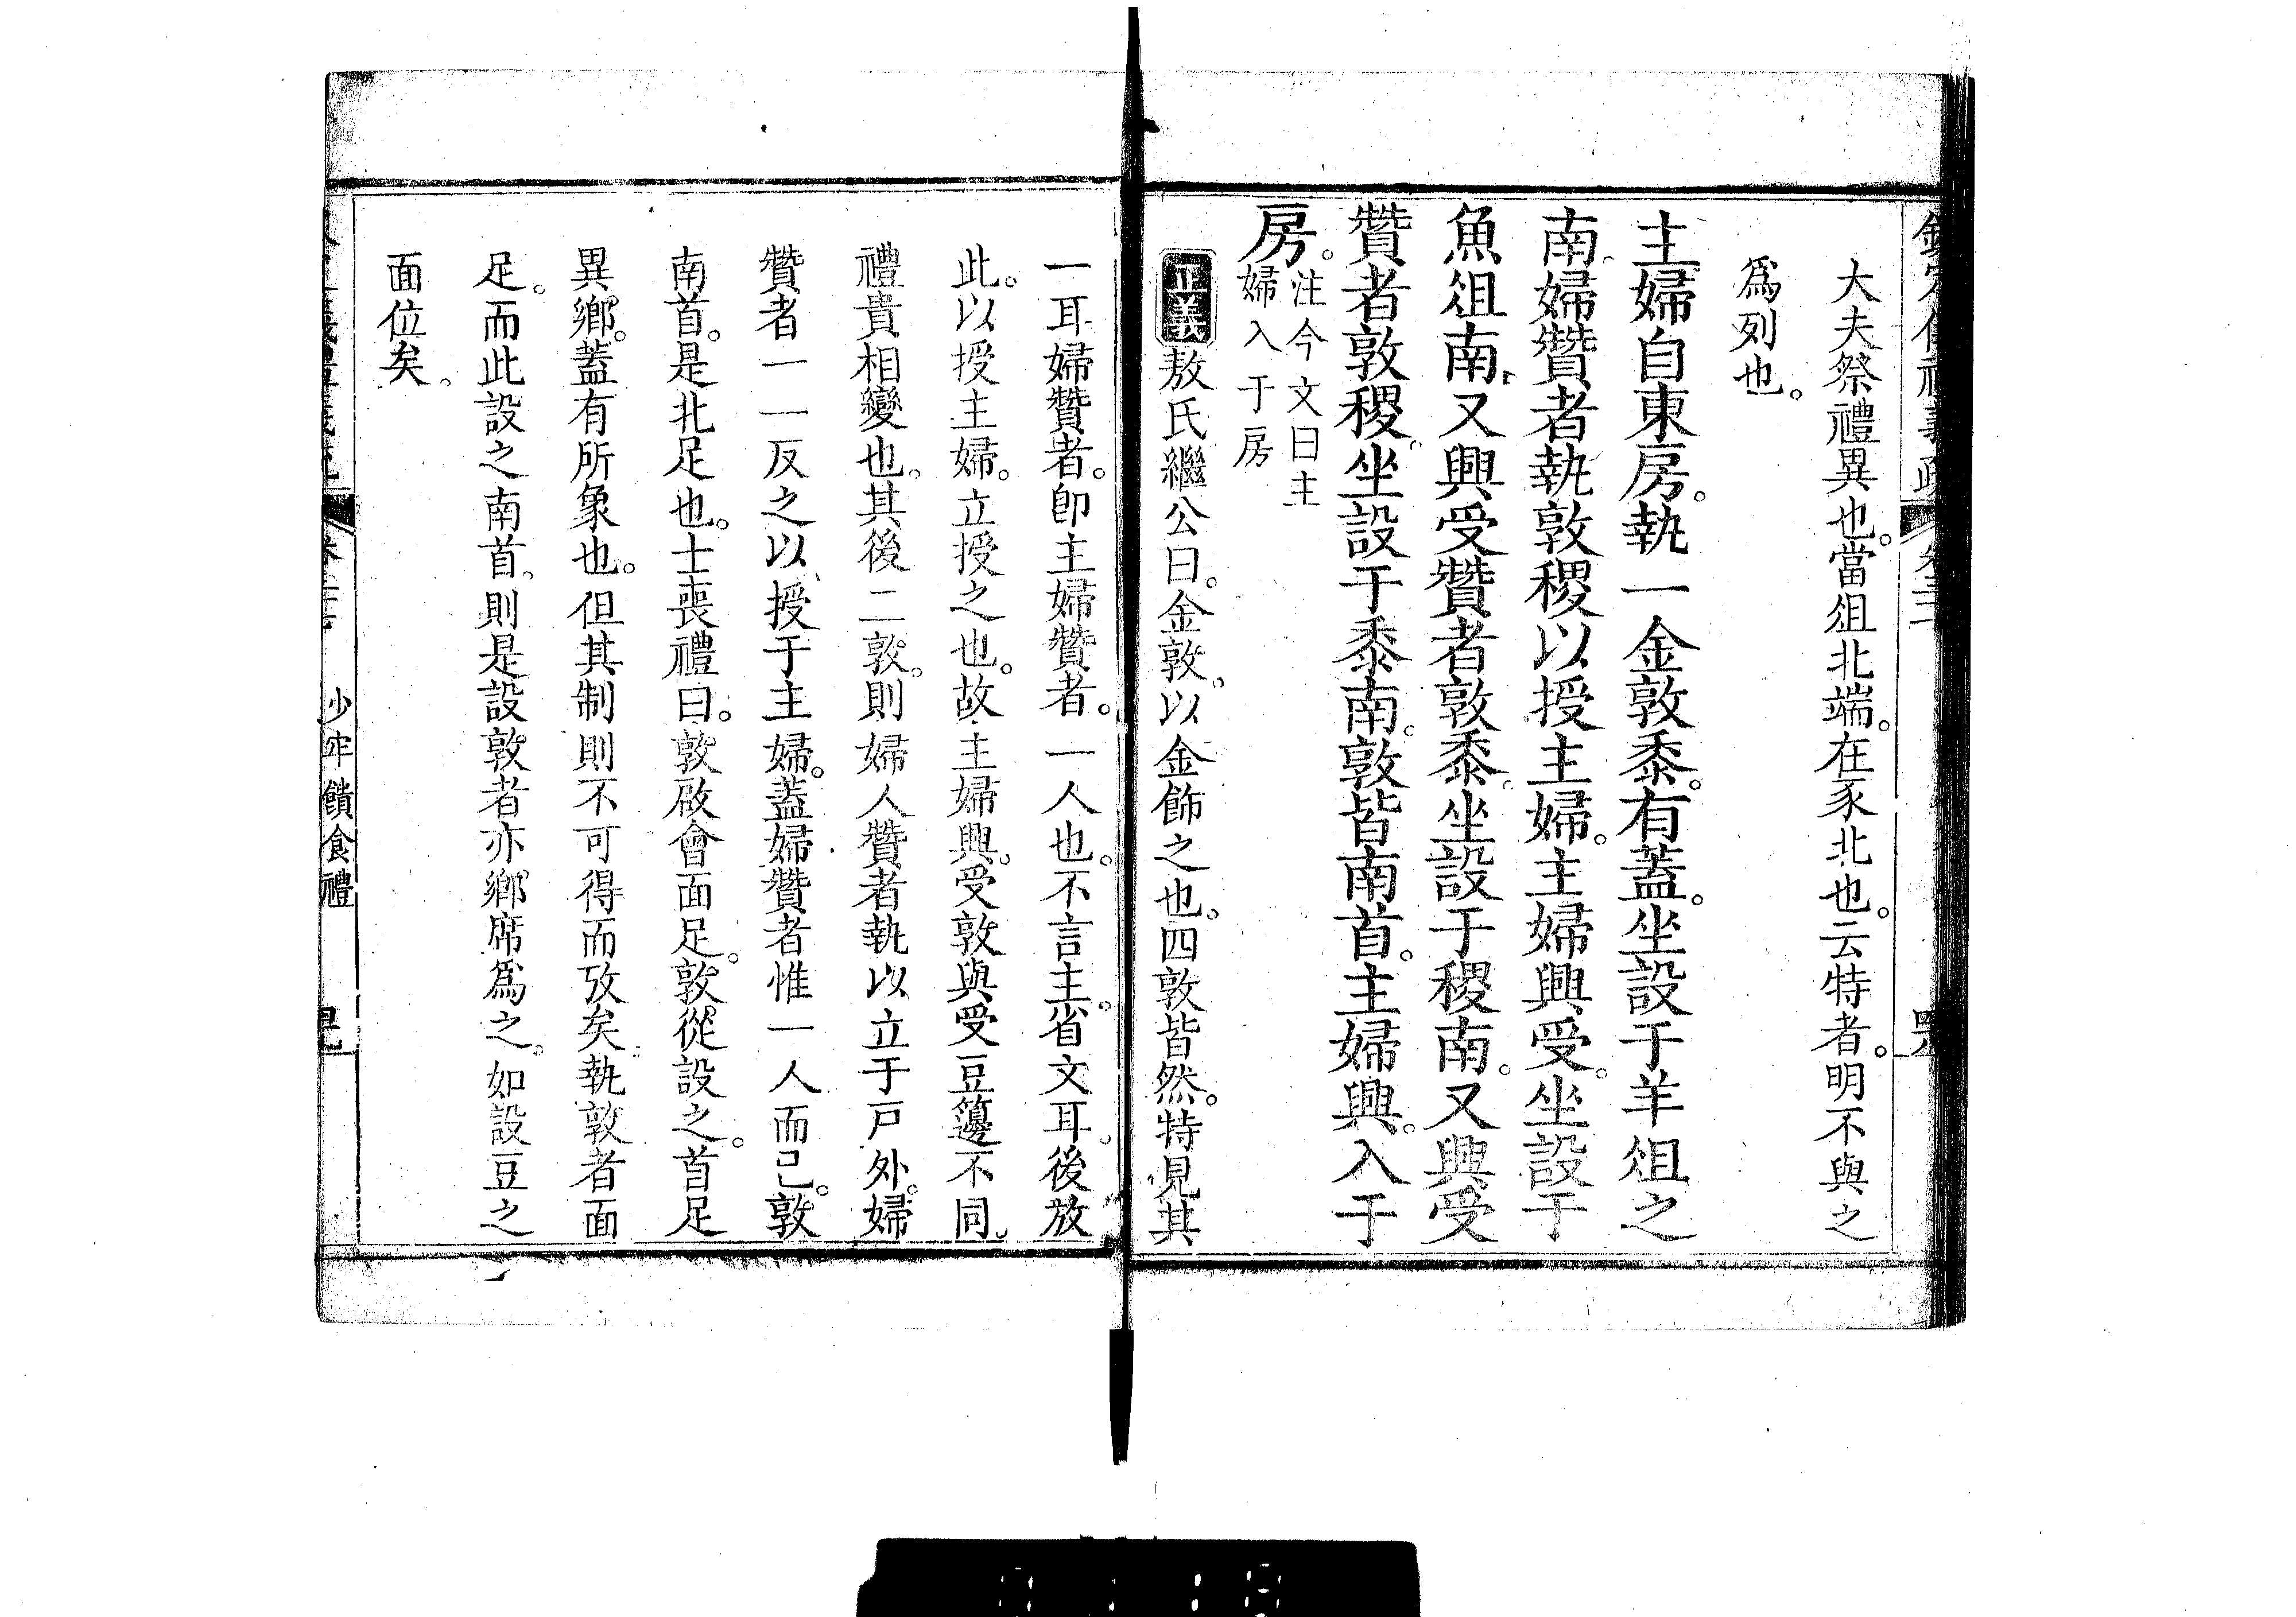 大夫祭禮異也。當俎北端。在豕北也。云特者。明不與之
爲列也。
主婦自東房。執一金敦黍。有蓋。坐設于羊俎之
南。婦贊者執敦稷以授主婦。主婦興受。坐設于
魚俎南。又興受贊者敦黍。坐設于稷南。又興受
贊者敦稷。坐設于黍南。敦皆南首。主婦興。入于
房。
注今文曰主
婦入于房
正義敖氏繼公曰。金敦。以金飾之也。四敦皆然。特見其
一耳婦贊者。卽主婦贊者。一人也。不言主。省文耳。後放
此。以授主婦。立授之也。故主婦興。受敦與受豆籩不同。
禮貴相變也。其後二敦。則婦人贊者執以立于戸外。婦
贊者一一反之以授于主婦。蓋婦贊者惟一人而已。敦
南首。是北足也。士喪禮曰。敦啟會面足。敦從設之。首足
異鄉。蓋有所象也。但其制則不可得而攷矣。執敦者面
足。而此設之南首。則是設敦者亦鄉席爲之。如設豆之
面位矣。
少牢饋食禮